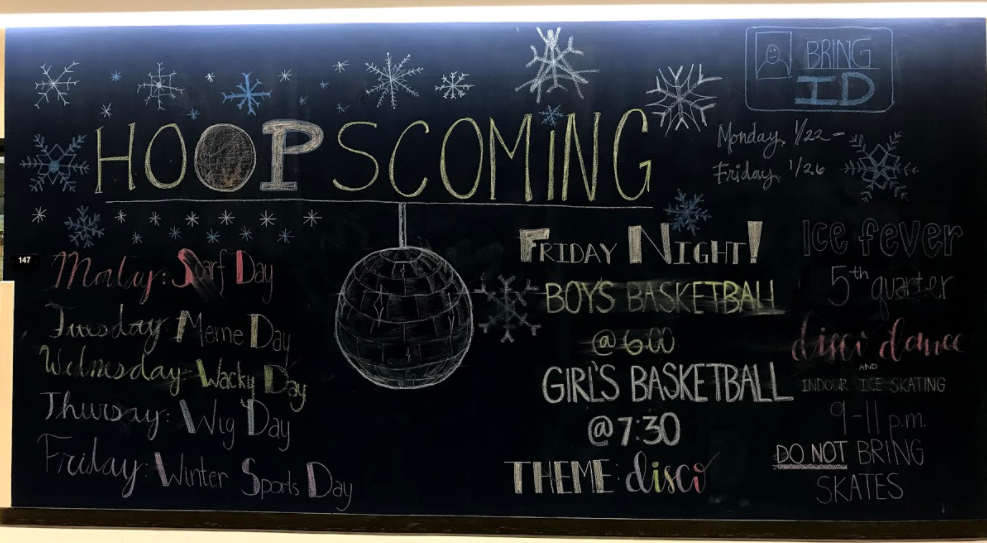 BRING
ID
HOOPSCOMING
Monday, 1/22 -
Friday, 1/26
147
Monday: Scarf Day
Tuesday: Meme Day
Wednesday: Wacky Day
Thursday: Wig Day
Friday: Winter Sports Day
FRIDAY NIGHT!
BOYS BASKETBALL
@ 6:00
GIRL'S BASKETBALL
@ 7:30
THEME: disco
Ice fever
5th quarter
disco dance
AND
INDOOR ICE SKATING
9-11 p.m.
DO NOT BRING
SKATES